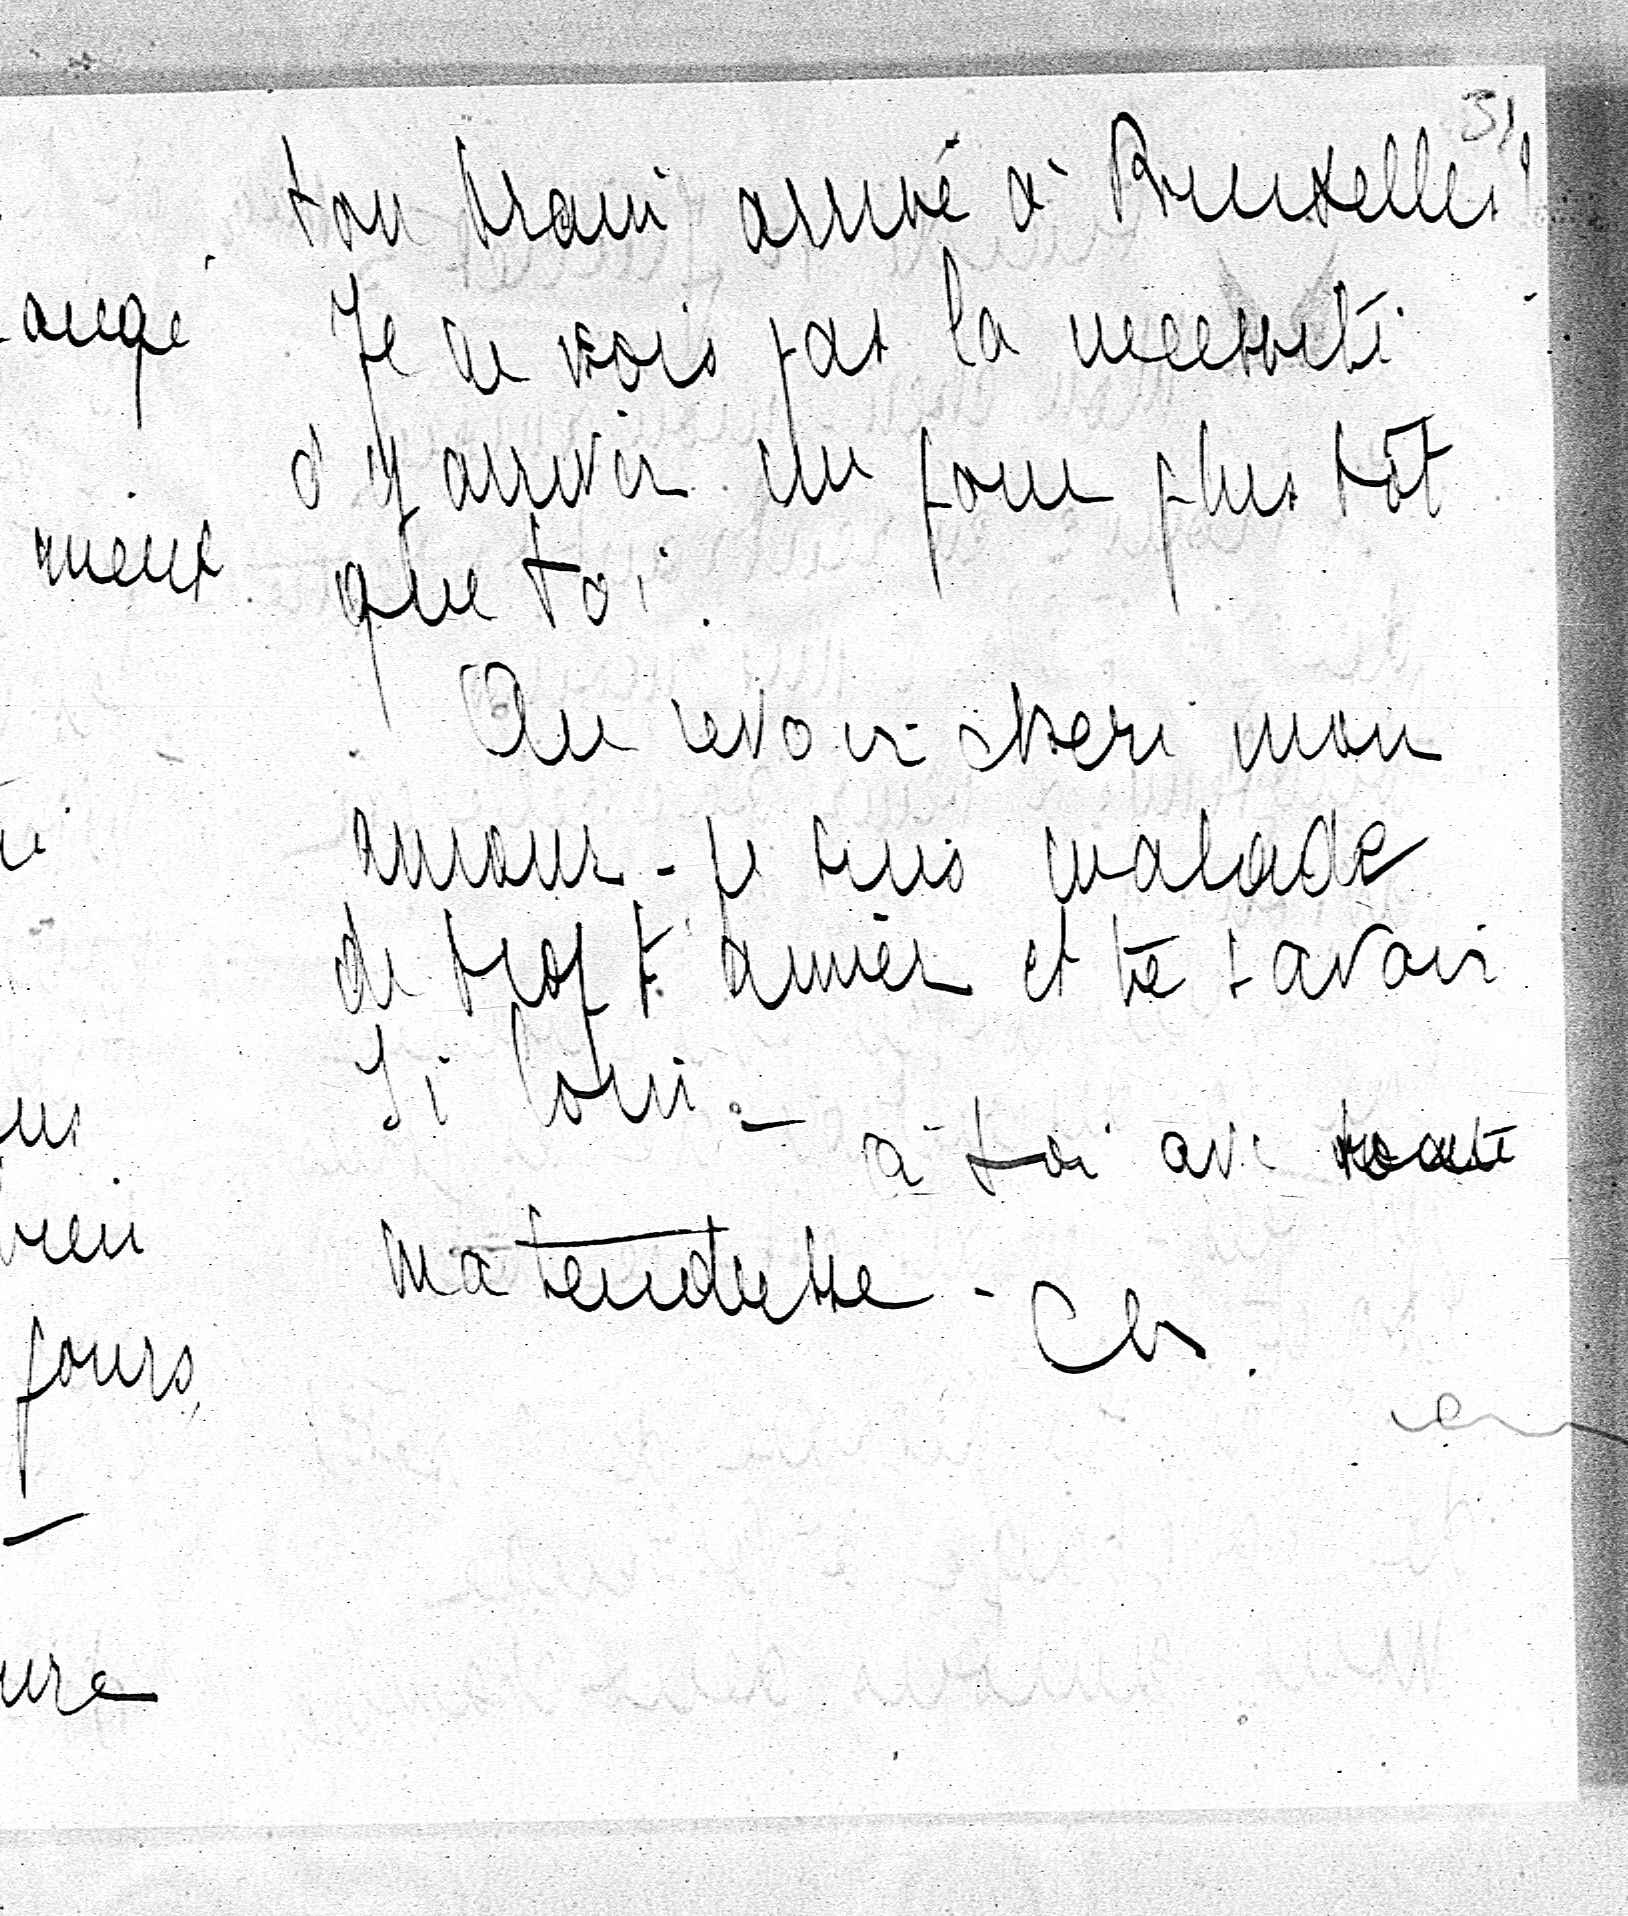 31
ton train arrivé à Bruxelles!
Je ne vois pas la necessité
d'y arriver un jour plus tôt
que toi.
Au revoir cheri mon
amour - je suis malade
de trop t'aimer et te savoir
si loin. -
à toi avec toute
ma tendresse -
mieux
rien
jours,